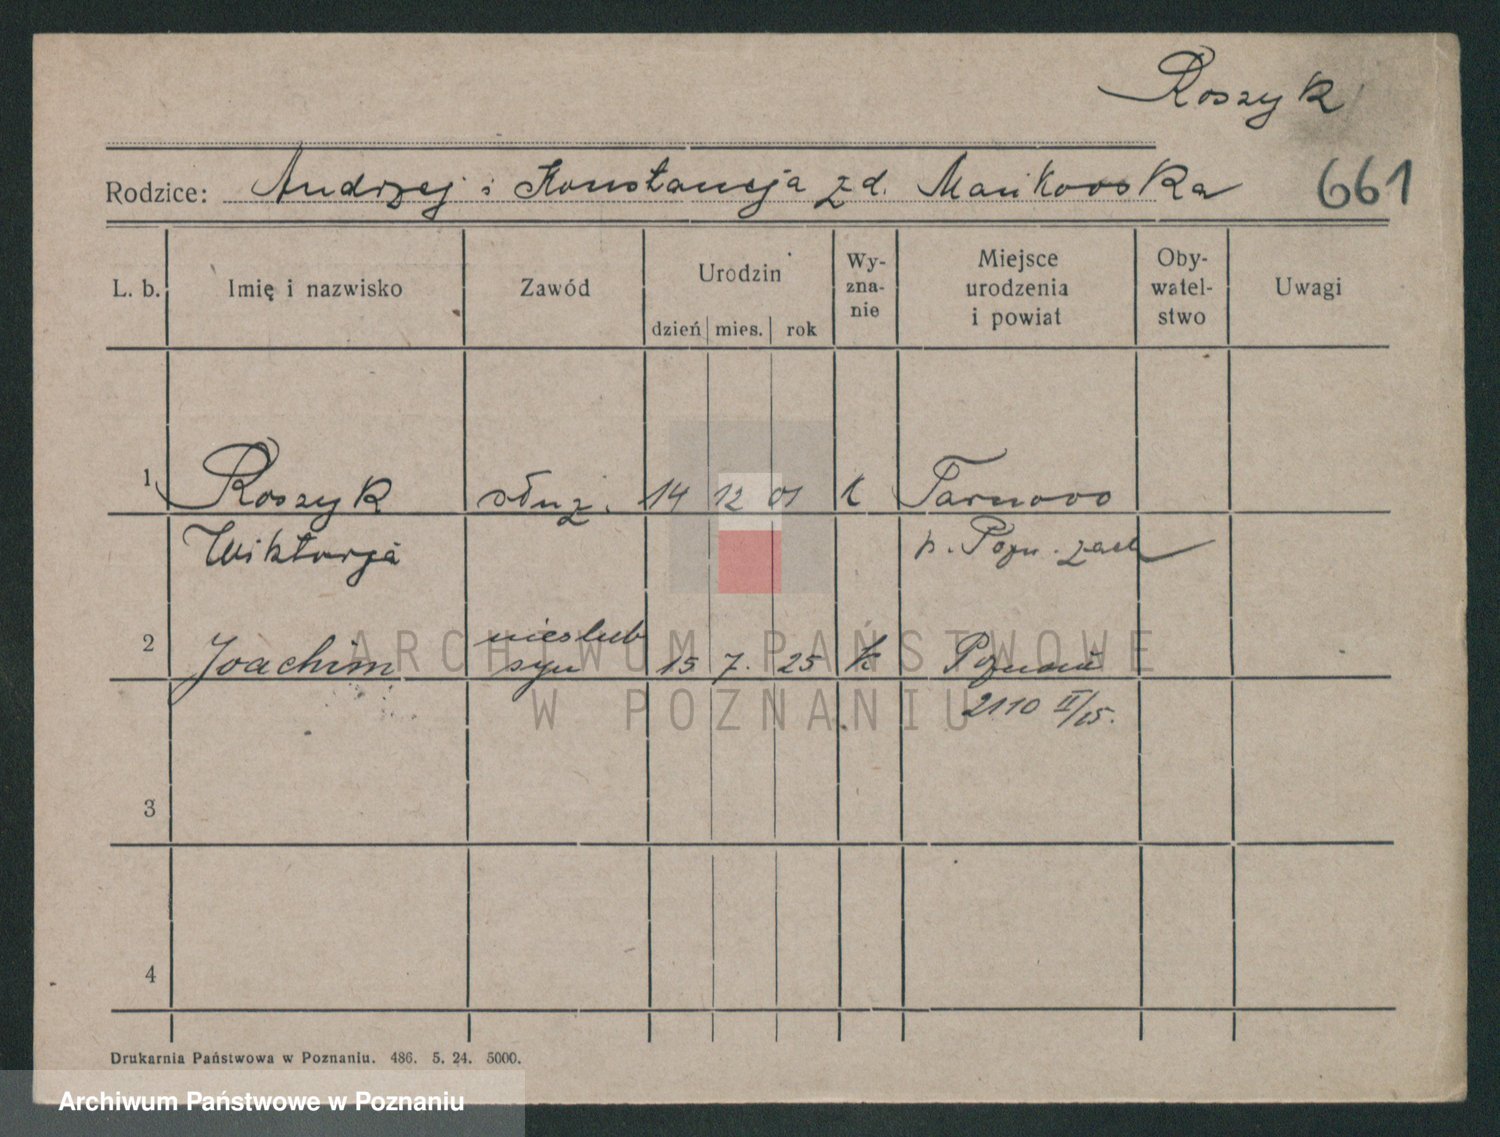 Roszyk
Rodzice: Andrzej i Konstancja z d. Mańkowska 661
L. b. Imię i nazwisko Zawód Urodzin dzień mies. rok Wy-zna-nie Miejsce urodzenia i powiat Oby-watel-stwo Uwagi
1 Roszyk służ. 14 12 01 k Tarnowo
Wiktorja p. Pozn. zach
nieślub
2 Joachim syn 15 7. 25 k Poznań
2110 II/15.
3
4
ARCHIWUM PAŃSTWOWE
W POZNANIU
Drukarnia Państwowa w Poznaniu. 486. 5. 24. 5000.
Archiwum Państwowe w Poznaniu